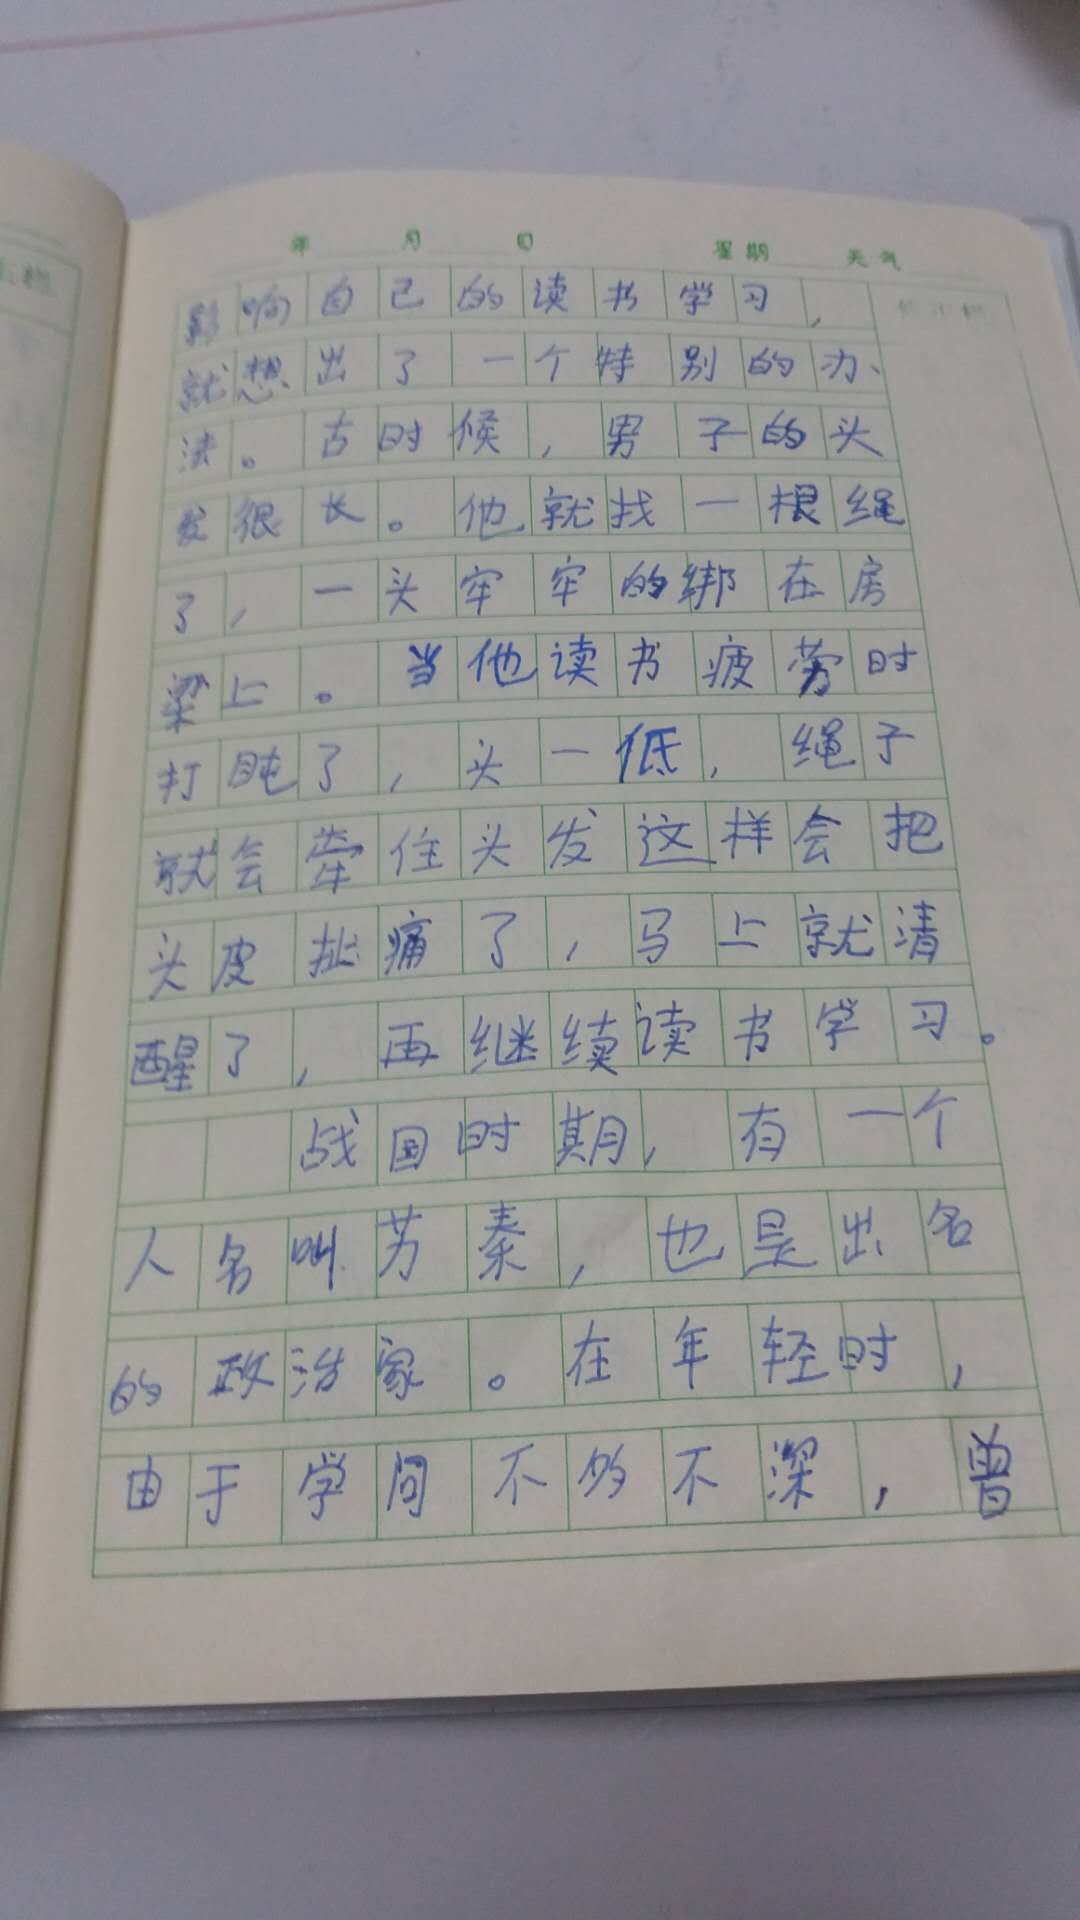 年 月 日 星期 天气
影响自己的读书学习，
就想出了一个特别的办
法。古时候，男子的头
发很长。他就找一根绳
了，一头牢牢的绑在房
梁上。当他读书疲劳时
打盹了，头一低，绳子
就会牵住头发这样会把
头皮扯痛了，马上就清
醒了，再继续读书学习。
战国时期，有一个
人名叫芳秦，也是出名
的政治家。在年轻时，
由于学问不够不深，曾